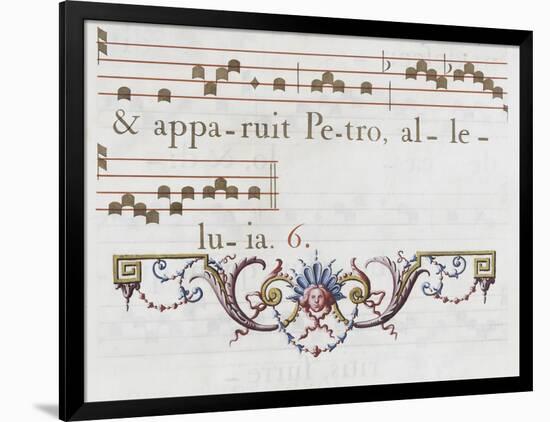 & appa-ruit Pe-tro, al-le-
lu-ia. 6.